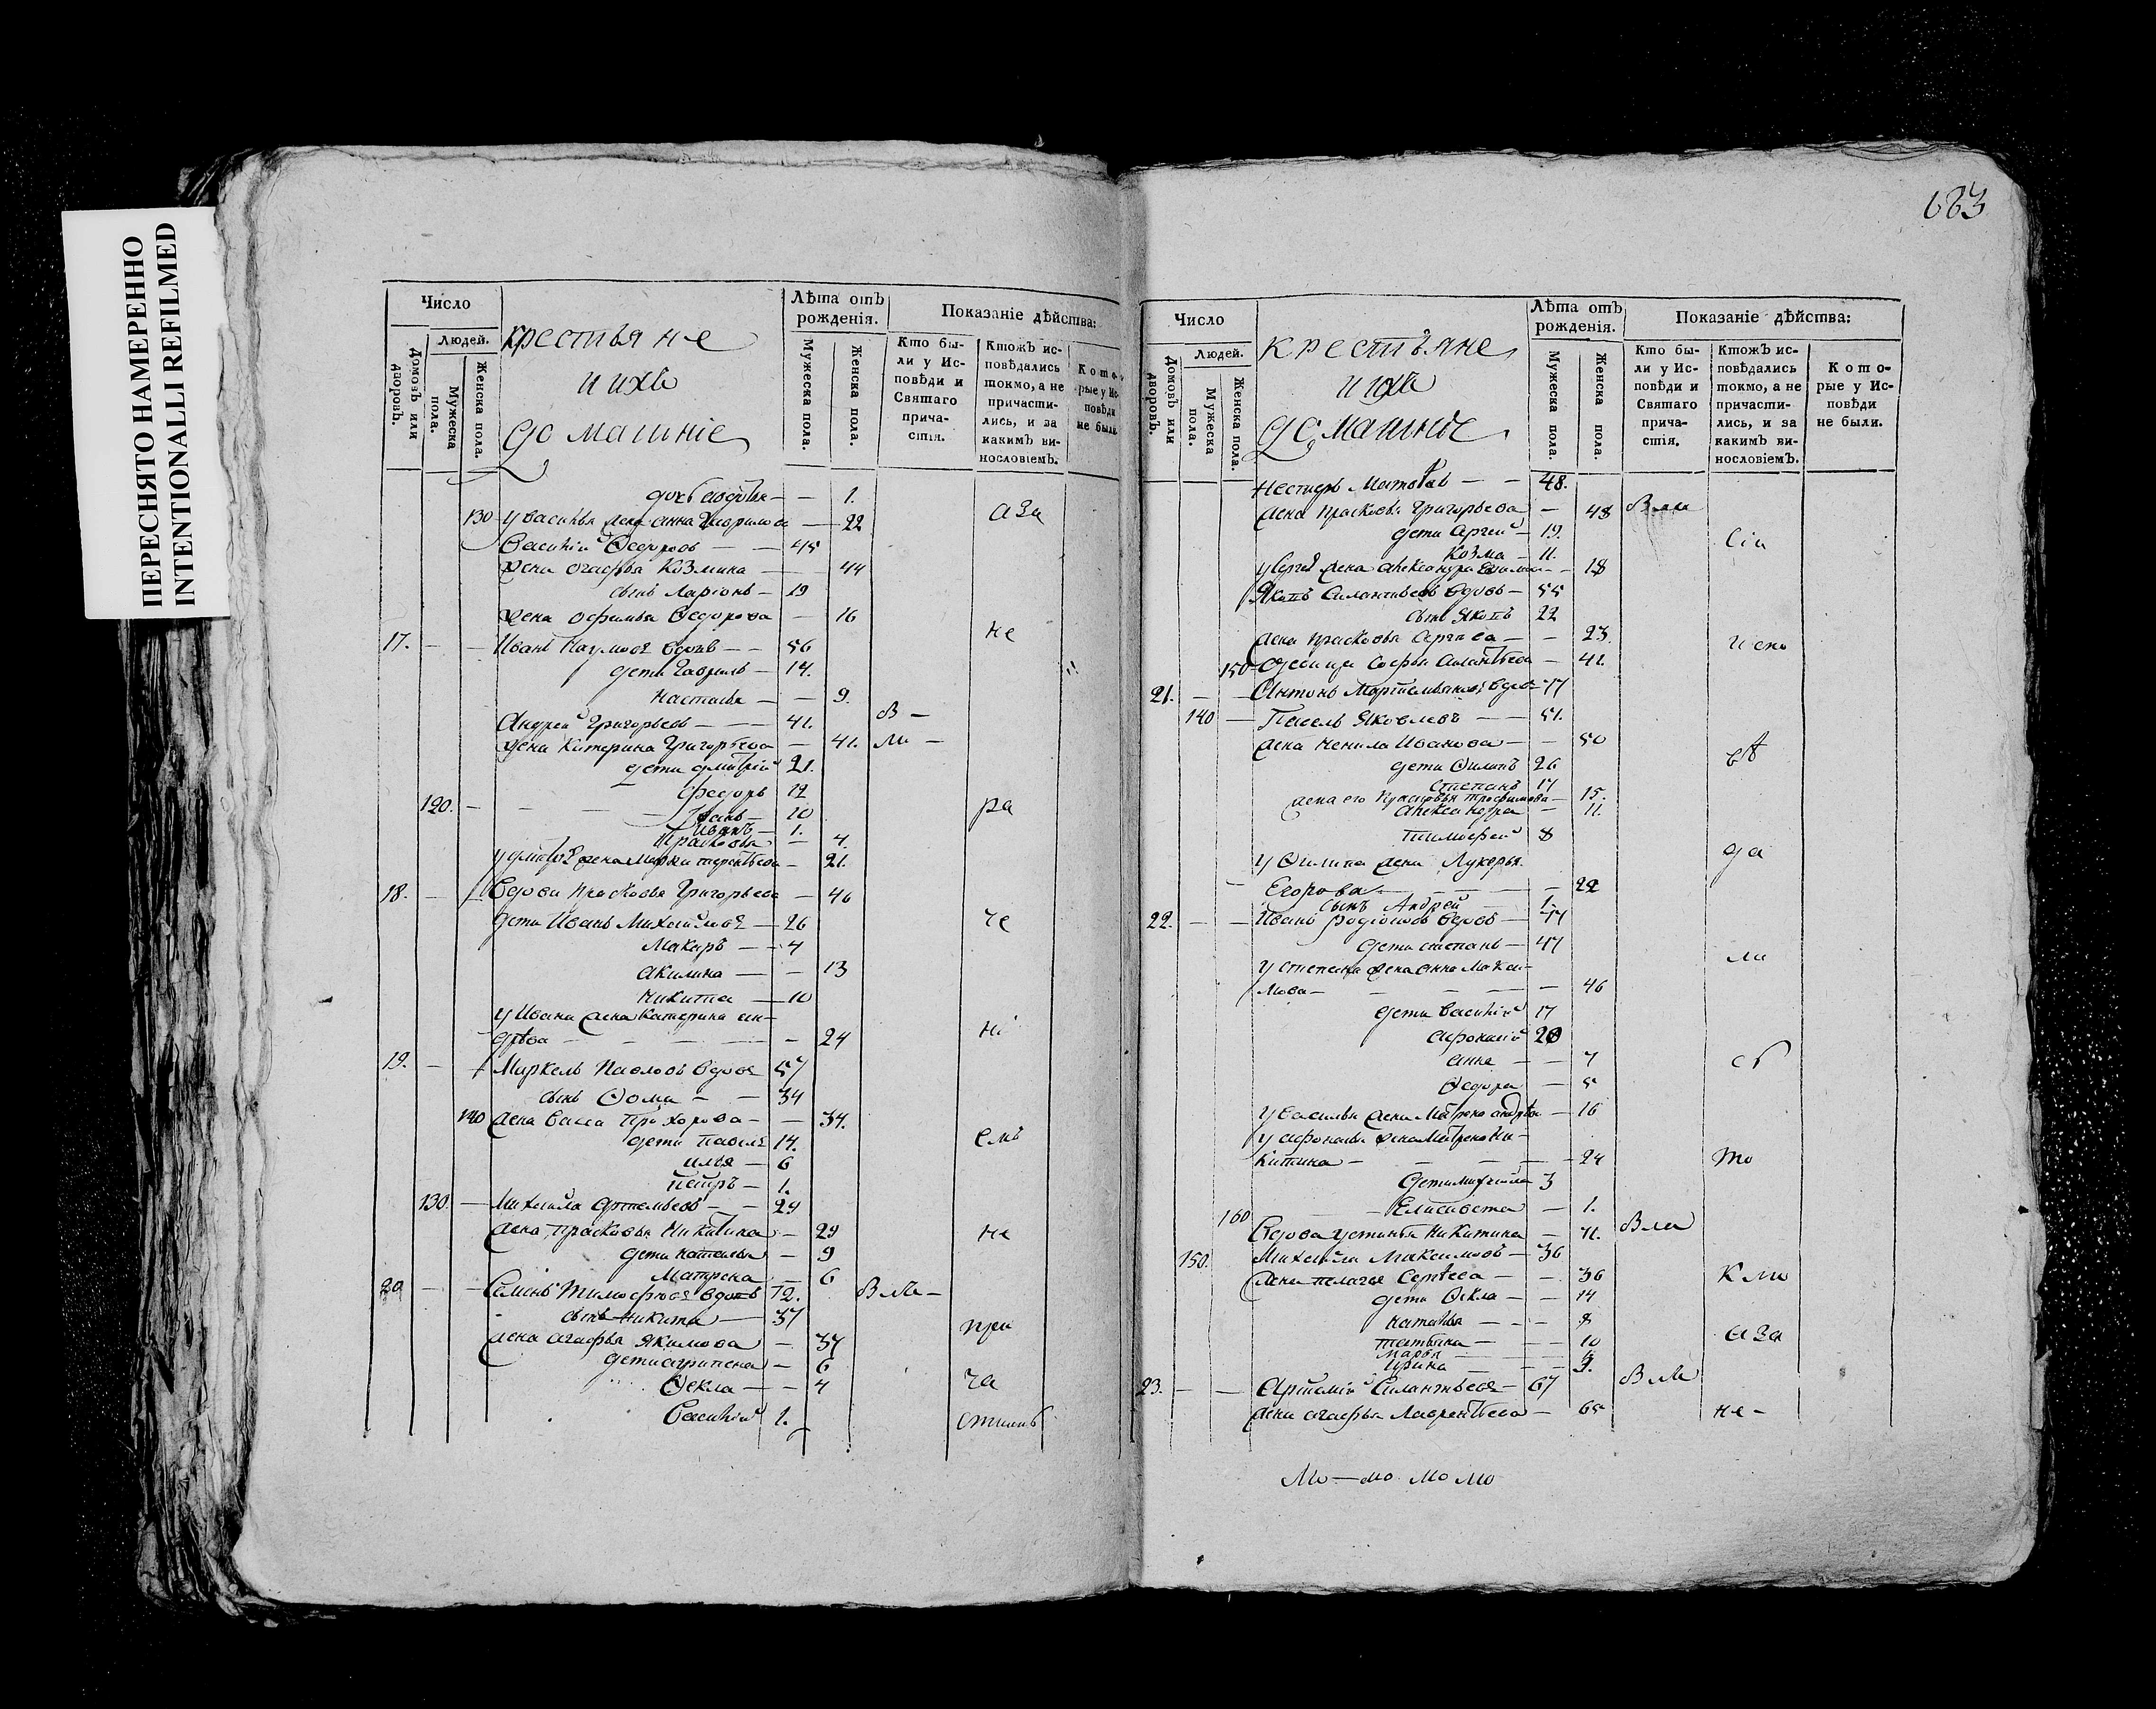 ПЕРЕСНЯТО НАМЕРЕННО
INTENTIONALLI REFILMED
683
Число
Людей.
Домовъ или дворовъ.
Мужеска пола.
Женска пола.
крестьяне
и ихъ
домашніе
Лѣта отъ рожденія.
Мужеска пола.
Женска пола.
Показаніе дѣйства:
Кто были у Исповѣди и Святаго причастія.
Ктожъ исповѣдались токмо, а не причастились, и за какимъ винословіемъ.
Которые у Исповѣди не были.
дочь — — 1.
130 у Василья жена Анна Гаврилова — 22 аза
Василий Ѳедоровъ — — 45
жена Агафья Козмина — — 44
сынъ Ларіонъ — 19
жена Офимья Ѳедорова — 16
17. — — Иванъ Наумовъ вдовъ — — 56 не
дети Гаврила — 14.
Настасья — — 9.
Андрей Григорьевъ — — — 41. в —
жена Катерина Григорьева — 41. ма —
дети Дмитрій 21.
Федоръ 12
120. — — — — 10 ра
Иванъ — 1.
Прасковья — 4.
у Дмитрея жена Марья Терентьева — 21.
18. — — Вдова Прасковья Григорьева — 46
дети Иванъ Михайловъ — 26 че
Макаръ — — 4
Акилина — — 13
Никита — 10
у Ивана жена Катерина Ан-
дрѣева — — — — — 24 ні
19. — Маркелъ Павловъ вдовъ 57
сынъ Ѳома — — 34
140 жена Васса Прохорова — — 34.
дети Павелъ 14. емъ
Илья — 6
Петръ — 1.
130. — Михайла Артемьевъ — — 29
жена Прасковья Никитина — 29 не
дети Наталья — 9
Матрена — 6
20 — — Семенъ Тимофеевъ вдовъ 72. в ма —
сынъ Никита — 37
жена Агафья Якимова — 37 при
дети Агрипена — 6
Ѳекла — — 4 ча
Василий 1. стили
Число
Людей.
Домовъ или дворовъ.
Мужеска пола.
Женска пола.
крестьяне
и ихъ
домашніе
Лѣта отъ рожденія.
Мужеска пола.
Женска пола.
Показаніе дѣйства:
Кто были у Исповѣди и Святаго причастія.
Ктожъ исповѣдались токмо, а не причастились, и за какимъ винословіемъ.
Которые у Исповѣди не были.
Нестеръ Матвѣевъ — — 48.
жена Прасковья Григорьева — 48 в ма
дети Сергей — 19. сіи
Козма — 11.
у Сергея жена Александра — — 18
Якимъ Силантьевъ вдовъ — 55
сынъ Якимъ 22
жена Прасковья Сергиева — — 23. испо
150 Софья Силантьева — 41.
21. — — Антонъ вдовъ — 77
140 — Павелъ Яковлевъ — — 51.
жена Ненила Иванова — — 50 вѣ
дети Филипъ 26
Степанъ 17
жена его Прасковья Трофимова — 15.
Александра — 11.
Тимофей 8
у Филипа жена Лукерья да
Егорова — — — — — 22
сынъ Андрей — 1.
22. — — Иванъ Родіоновъ вдовъ — 77
дети Степанъ — 47
у Степана жена Анна Макси- ли
мова — — — — — 46
дети Василий 17
Афонасий 20
Анна — — 7 сь
Ѳедора — 5
у Василья жена Матрена Андрѣева — 16
у Афонасья жена Матрена Ни-
китина — — — — — 24 то
дети Михайла 3
160 — Елисавета — 1.
Вдова Устинья Никитина — 71. в ма
150. Михайла Максимовъ — 36
жена Пелагея Сергѣева — — 36 кмо
дети Ѳекла — — 14
Наталья — — — 8
Татьяна — — 10 аза
Марья —
Ирина — — — 3.
23. — — Артемій Силантьевъ — 67 в ма
жена Агафья Лаврентьева — 65 не —
Мо — мо мо мо